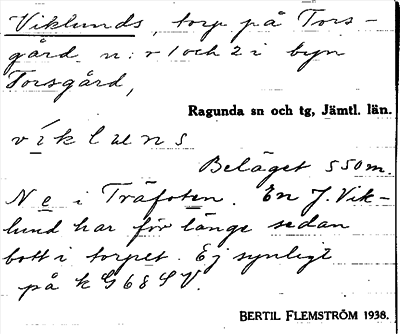 Viklunds, torp på Tors-
gård n:r 1 och 2 i byn
Torsgård,
Ragunda sn och tg, Jämtl. län.
vikluns
Beläget 550 m.
N e i Träfoten. En J. Vik-
lund har för länge sedan
bott i torpet. Ej synligt
på k G 68 SV.
BERTIL FLEMSTRÖM 1938.